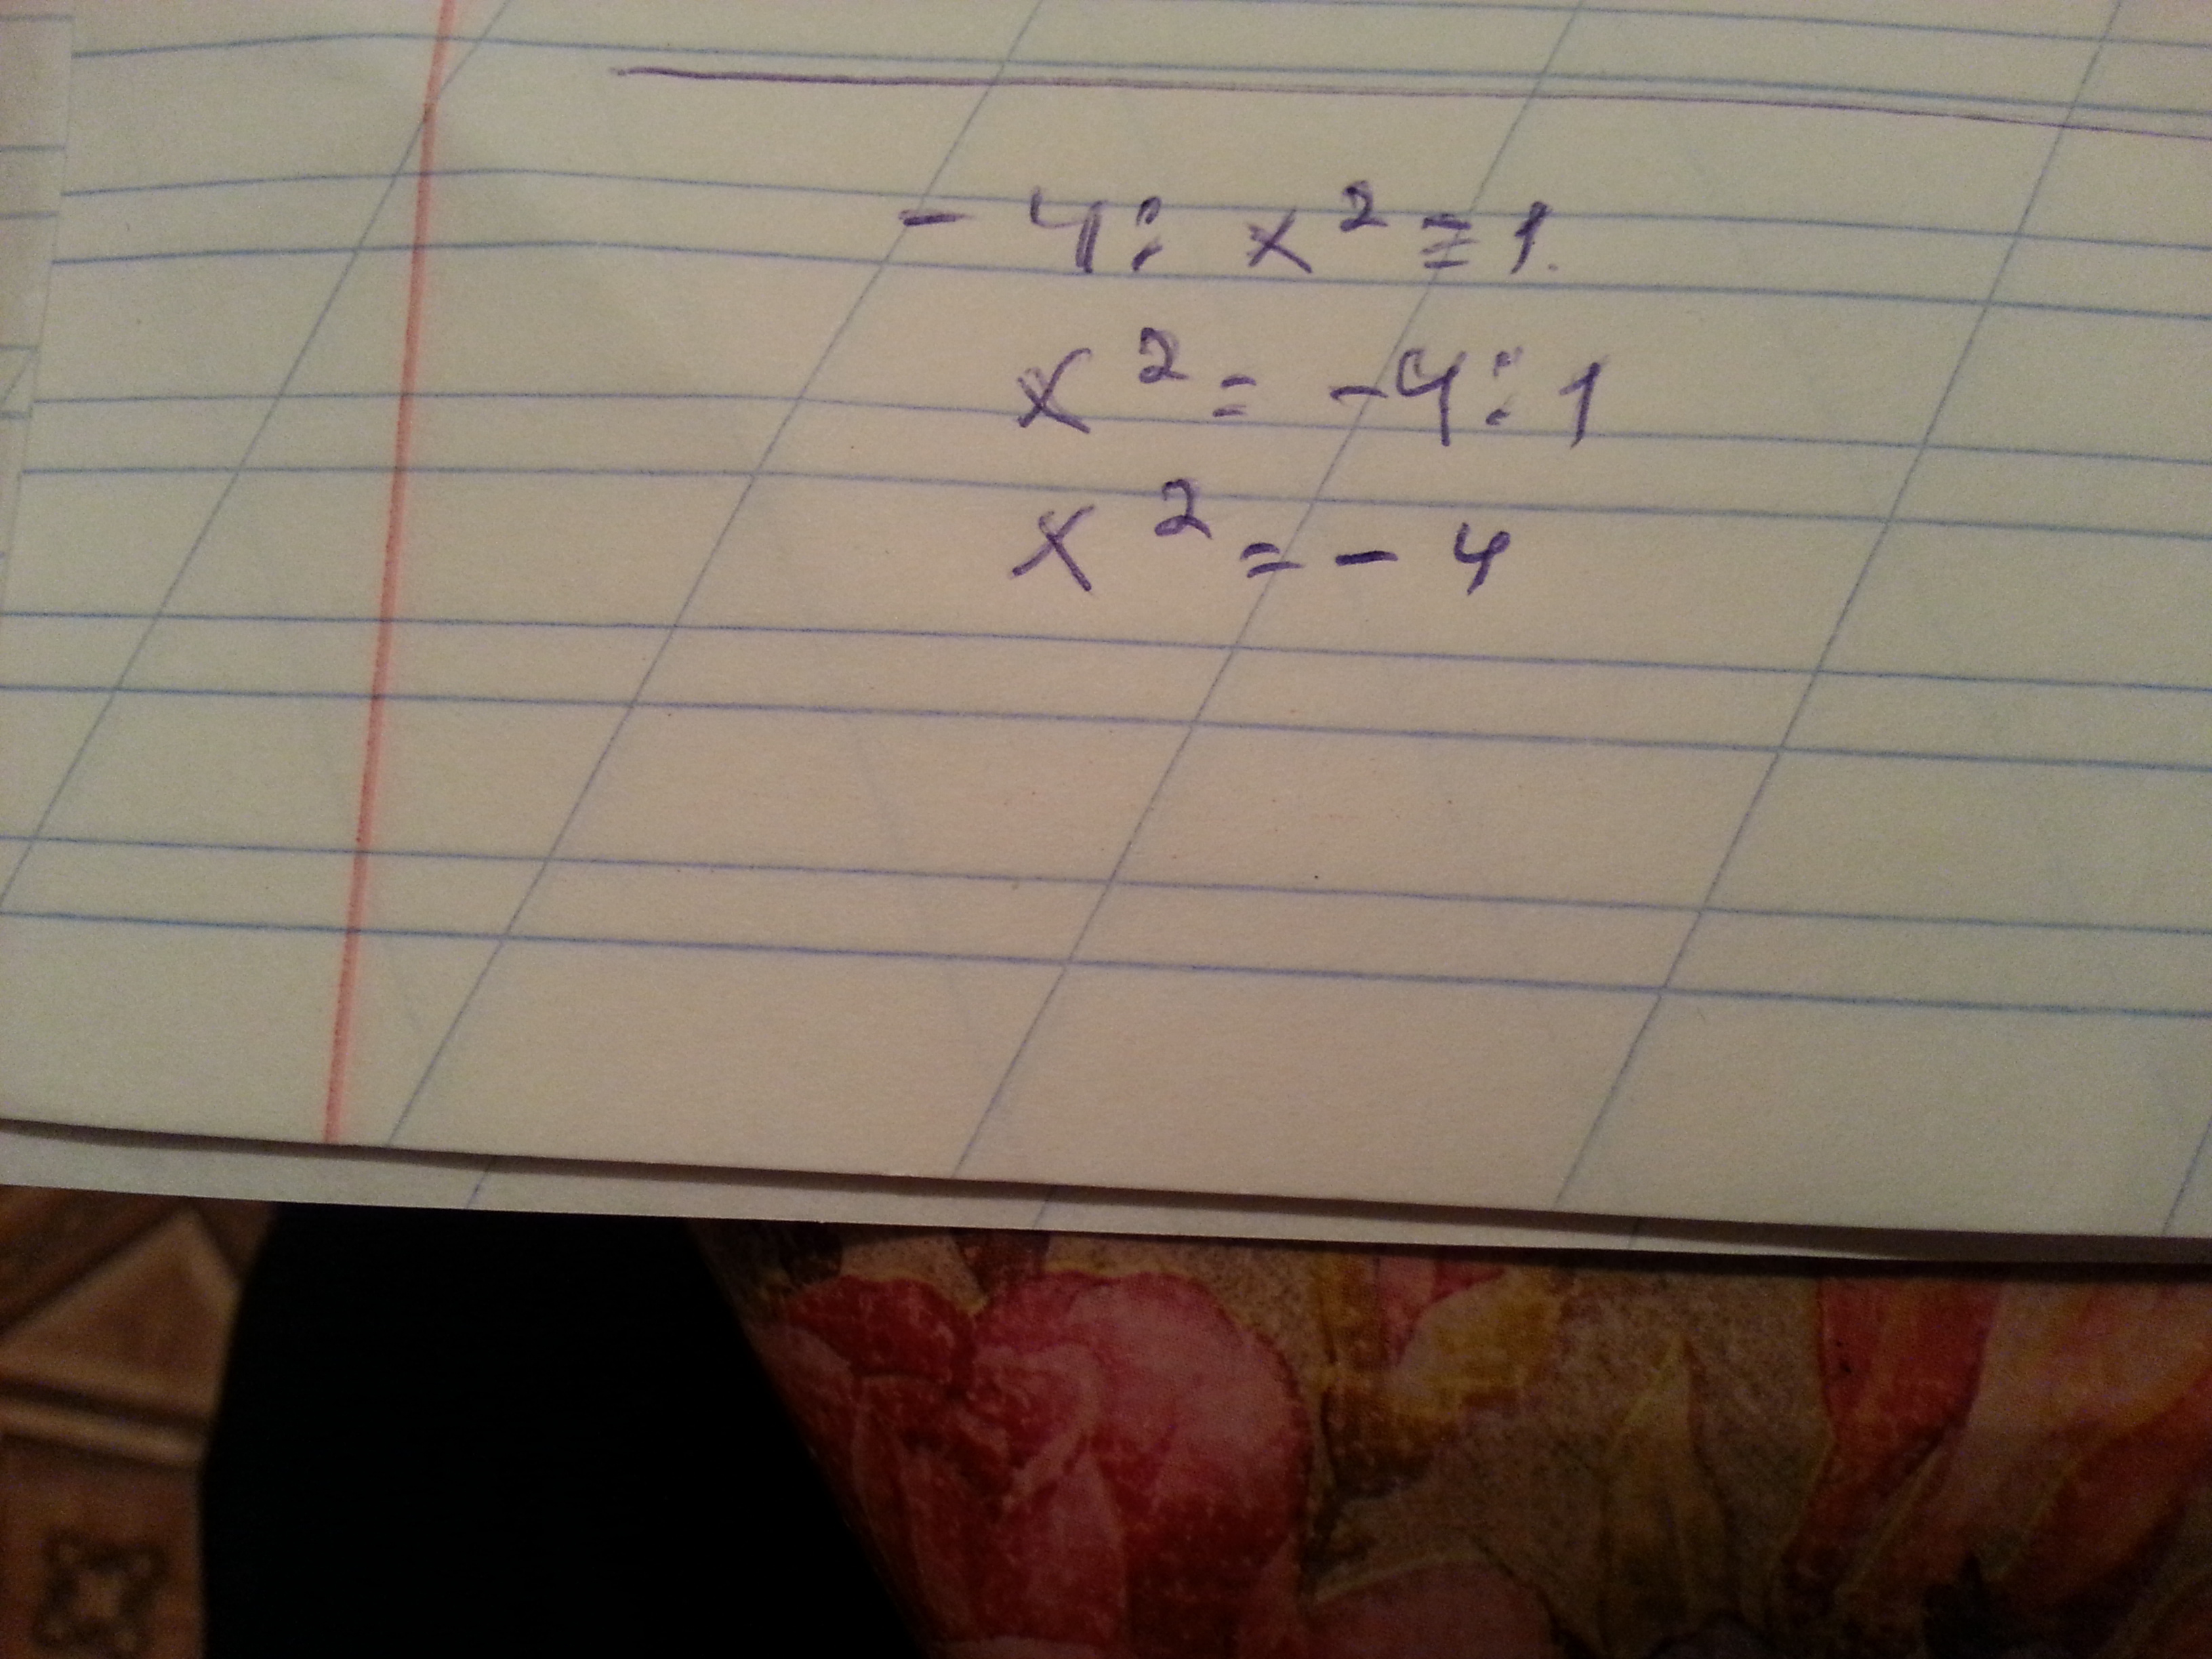 - 4 : x² = 1.
x² = -4 : 1
x² = - 4